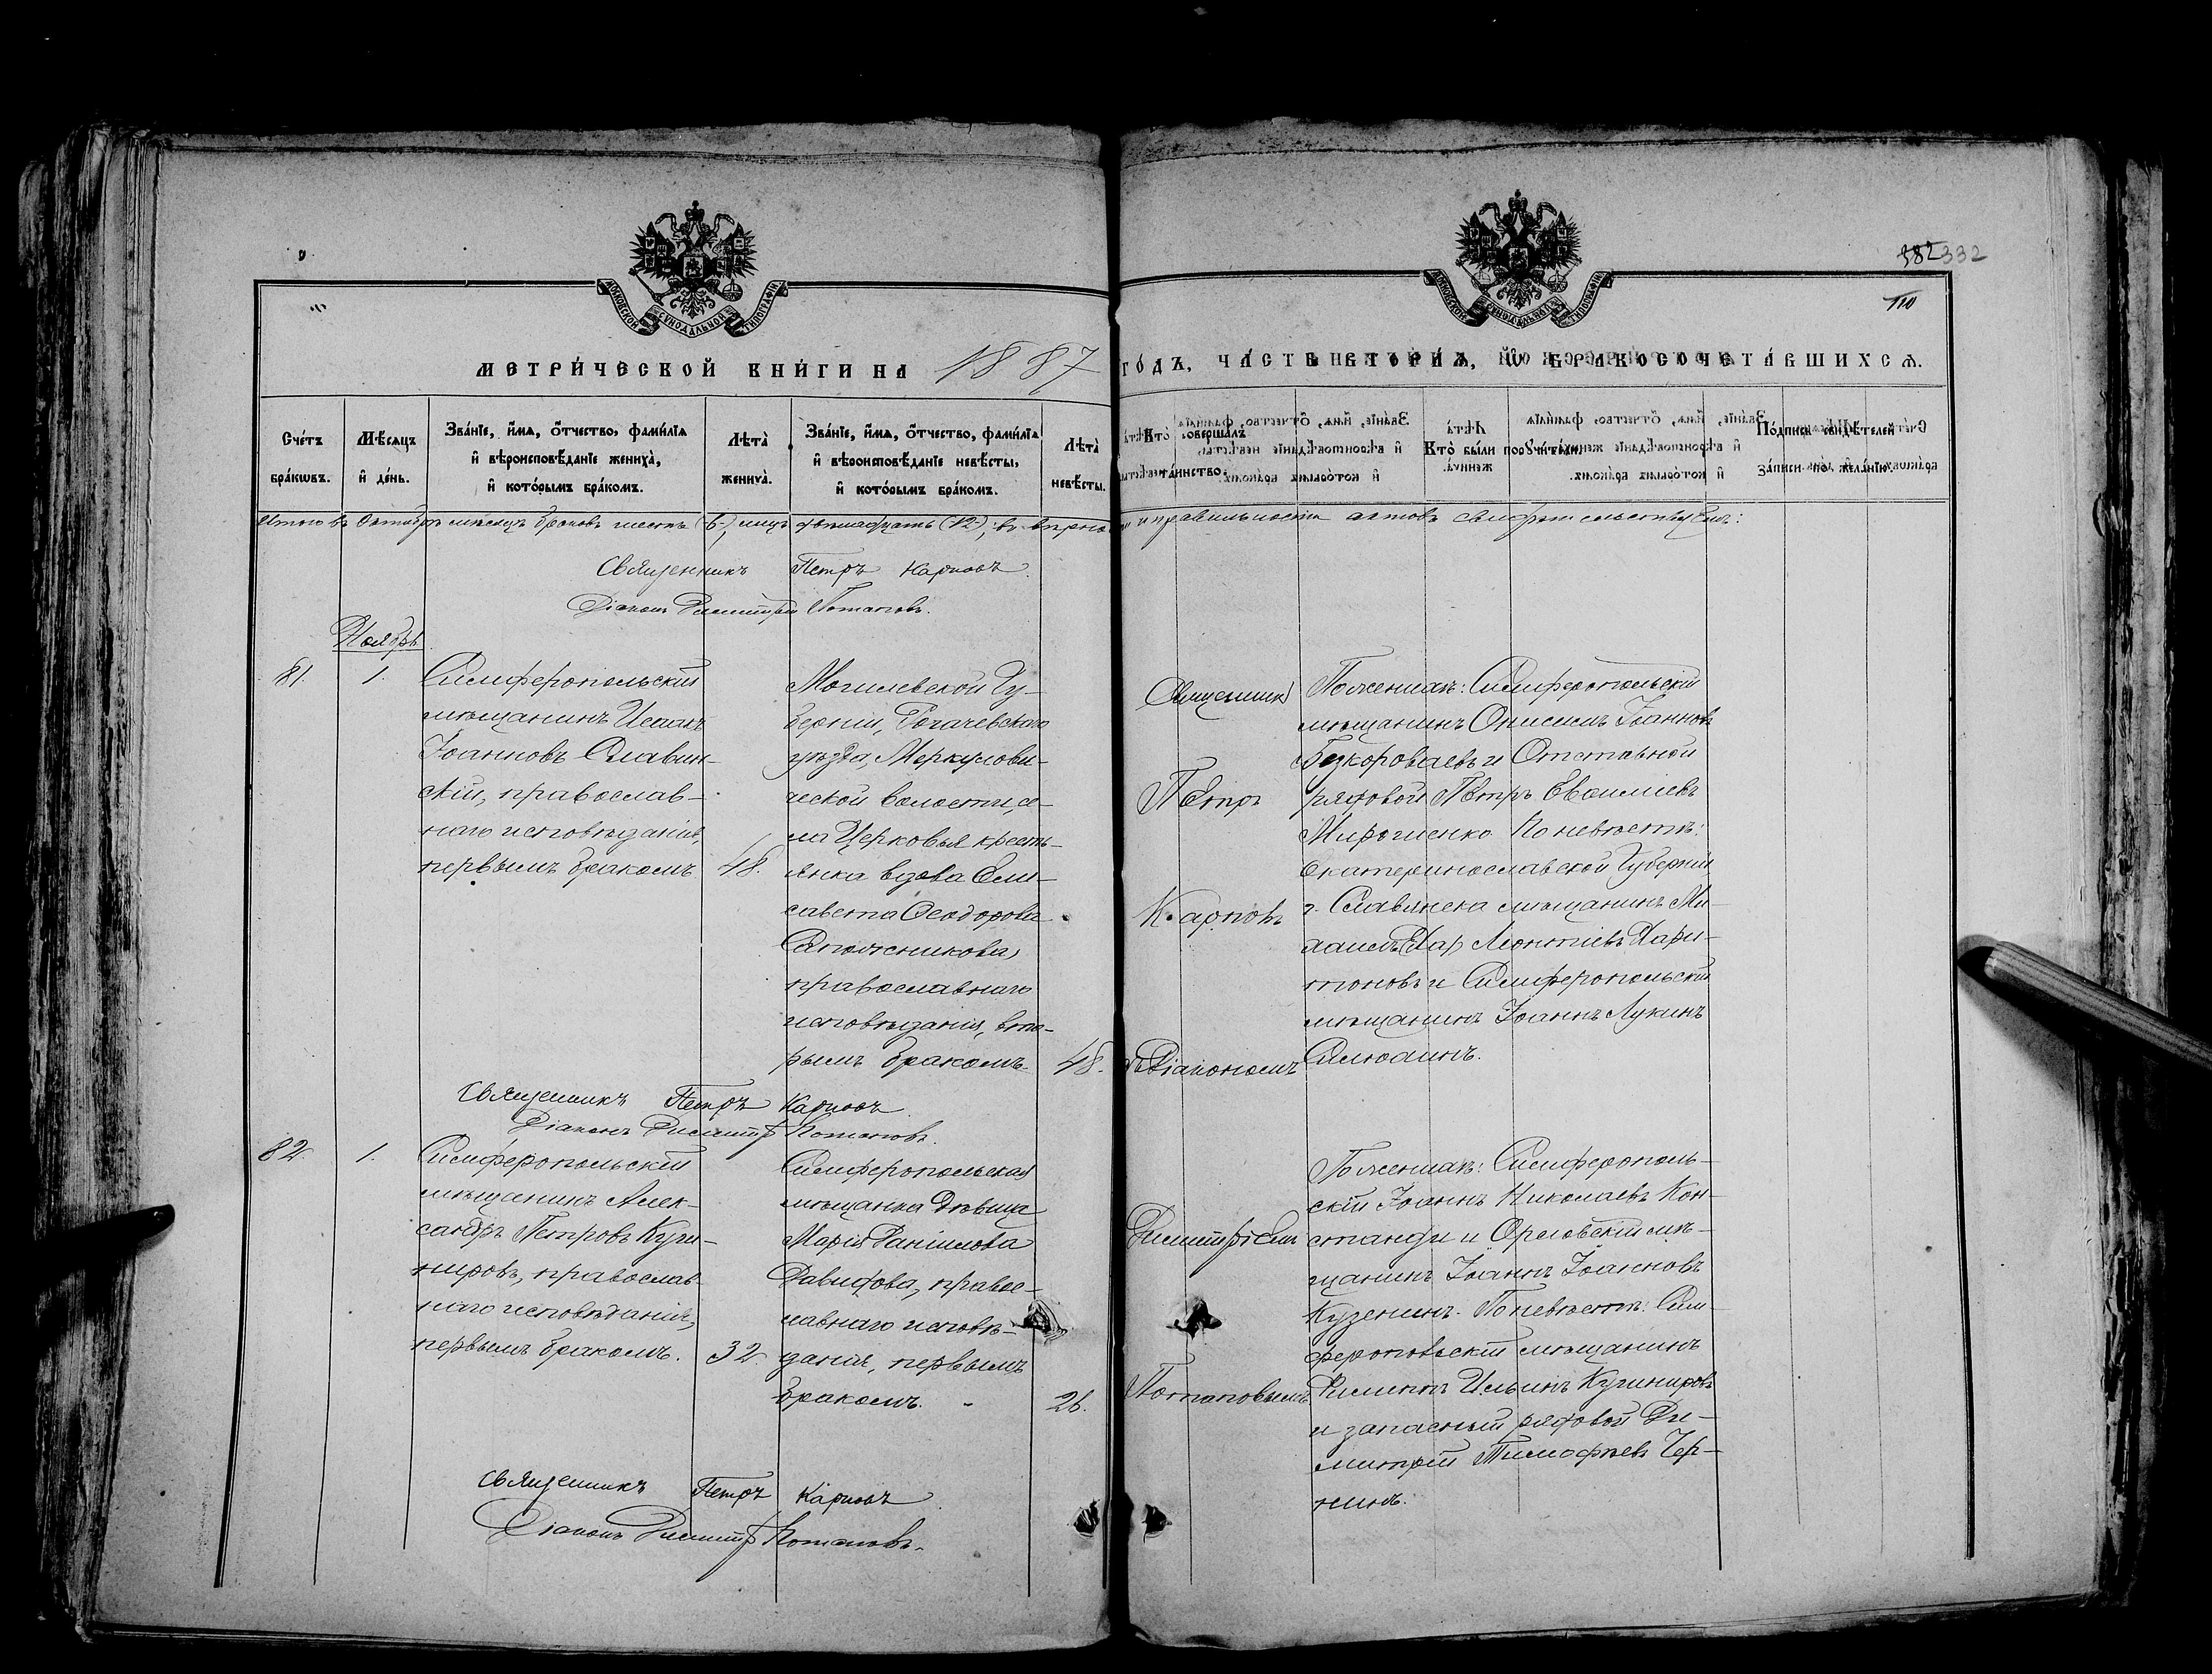 382 332
110
МОСКОВСКОЙ СѴНОДАЛЬНОЙ ТИПОГРАФІИ
МОСКОВСКОЙ СѴНОДАЛЬНОЙ ТИПОГРАФІИ
МЕТРИ́ЧЕСКОЙ КНИ́ГИ НА 1887 ГО́ДЪ, ЧА́СТЬ ВТОРА́Я, Ѡ҆ БРАКОСОЧЕТА́ВШИХСѦ.
Сче́тъ бра́кѡвъ.
Мѣ́сѧцъ и҆ де́нь.
Зва́нїе, и҆́мѧ, ѻ҆́тчество, фами́лїѧ и҆ вѣроисповѣ́данїе жениха̀, и҆ кото́рымъ бра́комъ.
Лѣта̀ жениха̀.
Зва́нїе, и҆́мѧ, ѻ҆́тчество, фами́лїѧ и҆ вѣроисповѣ́данїе невѣ́сты, и҆ кото́рымъ бра́комъ.
Лѣта̀ невѣ́сты.
Кто̀ соверша́лъ та́инство.
Кто̀ бы́ли поручи́тели.
По́дпись свидѣ́телей за́писи по жела́нїю.
Итого въ Октябрѣ мѣсяцѣ браковъ шесть (6), лицъ двѣнадцать (12); въ вѣрно и правильности актовъ свидѣтельствуемъ:
Священникъ Петръ Карповъ
Діаконъ Димитрій Потаповъ.
Ноябрь
81.
1.
Симферопольскій
мѣщанинъ Исаакъ
Іоанновъ Славин-
скій, православ-
наго исповѣданія,
первымъ бракомъ
48.
Могилевской Гу-
берніи, Рогачевскаго
уѣзда, Меркулови-
ческой волости, се-
ла Церковья кресть-
янка вдова Ели-
савета Ѳеодорова
Сапожникова,
православнаго
исповѣданія, вто-
рымъ бракомъ.
48.
Священникъ
Петръ
Карповъ
съ Діакономъ
Димитріемъ
Потаповымъ
По женихѣ: Симферопольскій
мѣщанинъ Онисимъ Іоанновъ
Безкороваевъ и Отставной
рядовой Петръ Евсиміевъ
По невѣстѣ:
Екатеринославской Губерніи
г. Славянска мѣщанинъ Ми-
хаилъ Леонтіевъ Хари-
тоновъ и Симферопольскій
мѣщанинъ Іоаннъ Лукинъ
Священникъ Петръ Карповъ
Діаконъ Димитр Потаповъ.
82.
1.
Симферопольскій
мѣщанинъ Алек-
сандръ Петровъ Куши-
нировъ, православ-
наго исповѣданія,
первымъ бракомъ.
32.
Симферопольская
мѣщанка дѣвица
Марія Даніилова
Давидова, правос-
лавнаго исповѣ-
данія, первымъ
бракомъ.
26.
По женихѣ: Симферополь-
скій Іоаннъ Николаевъ Кон-
станди и Орловскій мѣ-
щанинъ Іоаннъ Іоанновъ
Кузенинъ. По невѣстѣ: Сим-
феропольскій мѣщанинъ
Ильинъ Кушнировъ
и запасный рядовой Ди-
митрій Тимофѣевъ Чер-
нинъ.
Священникъ Петръ Карповъ
Діаконъ Димитр Потаповъ.